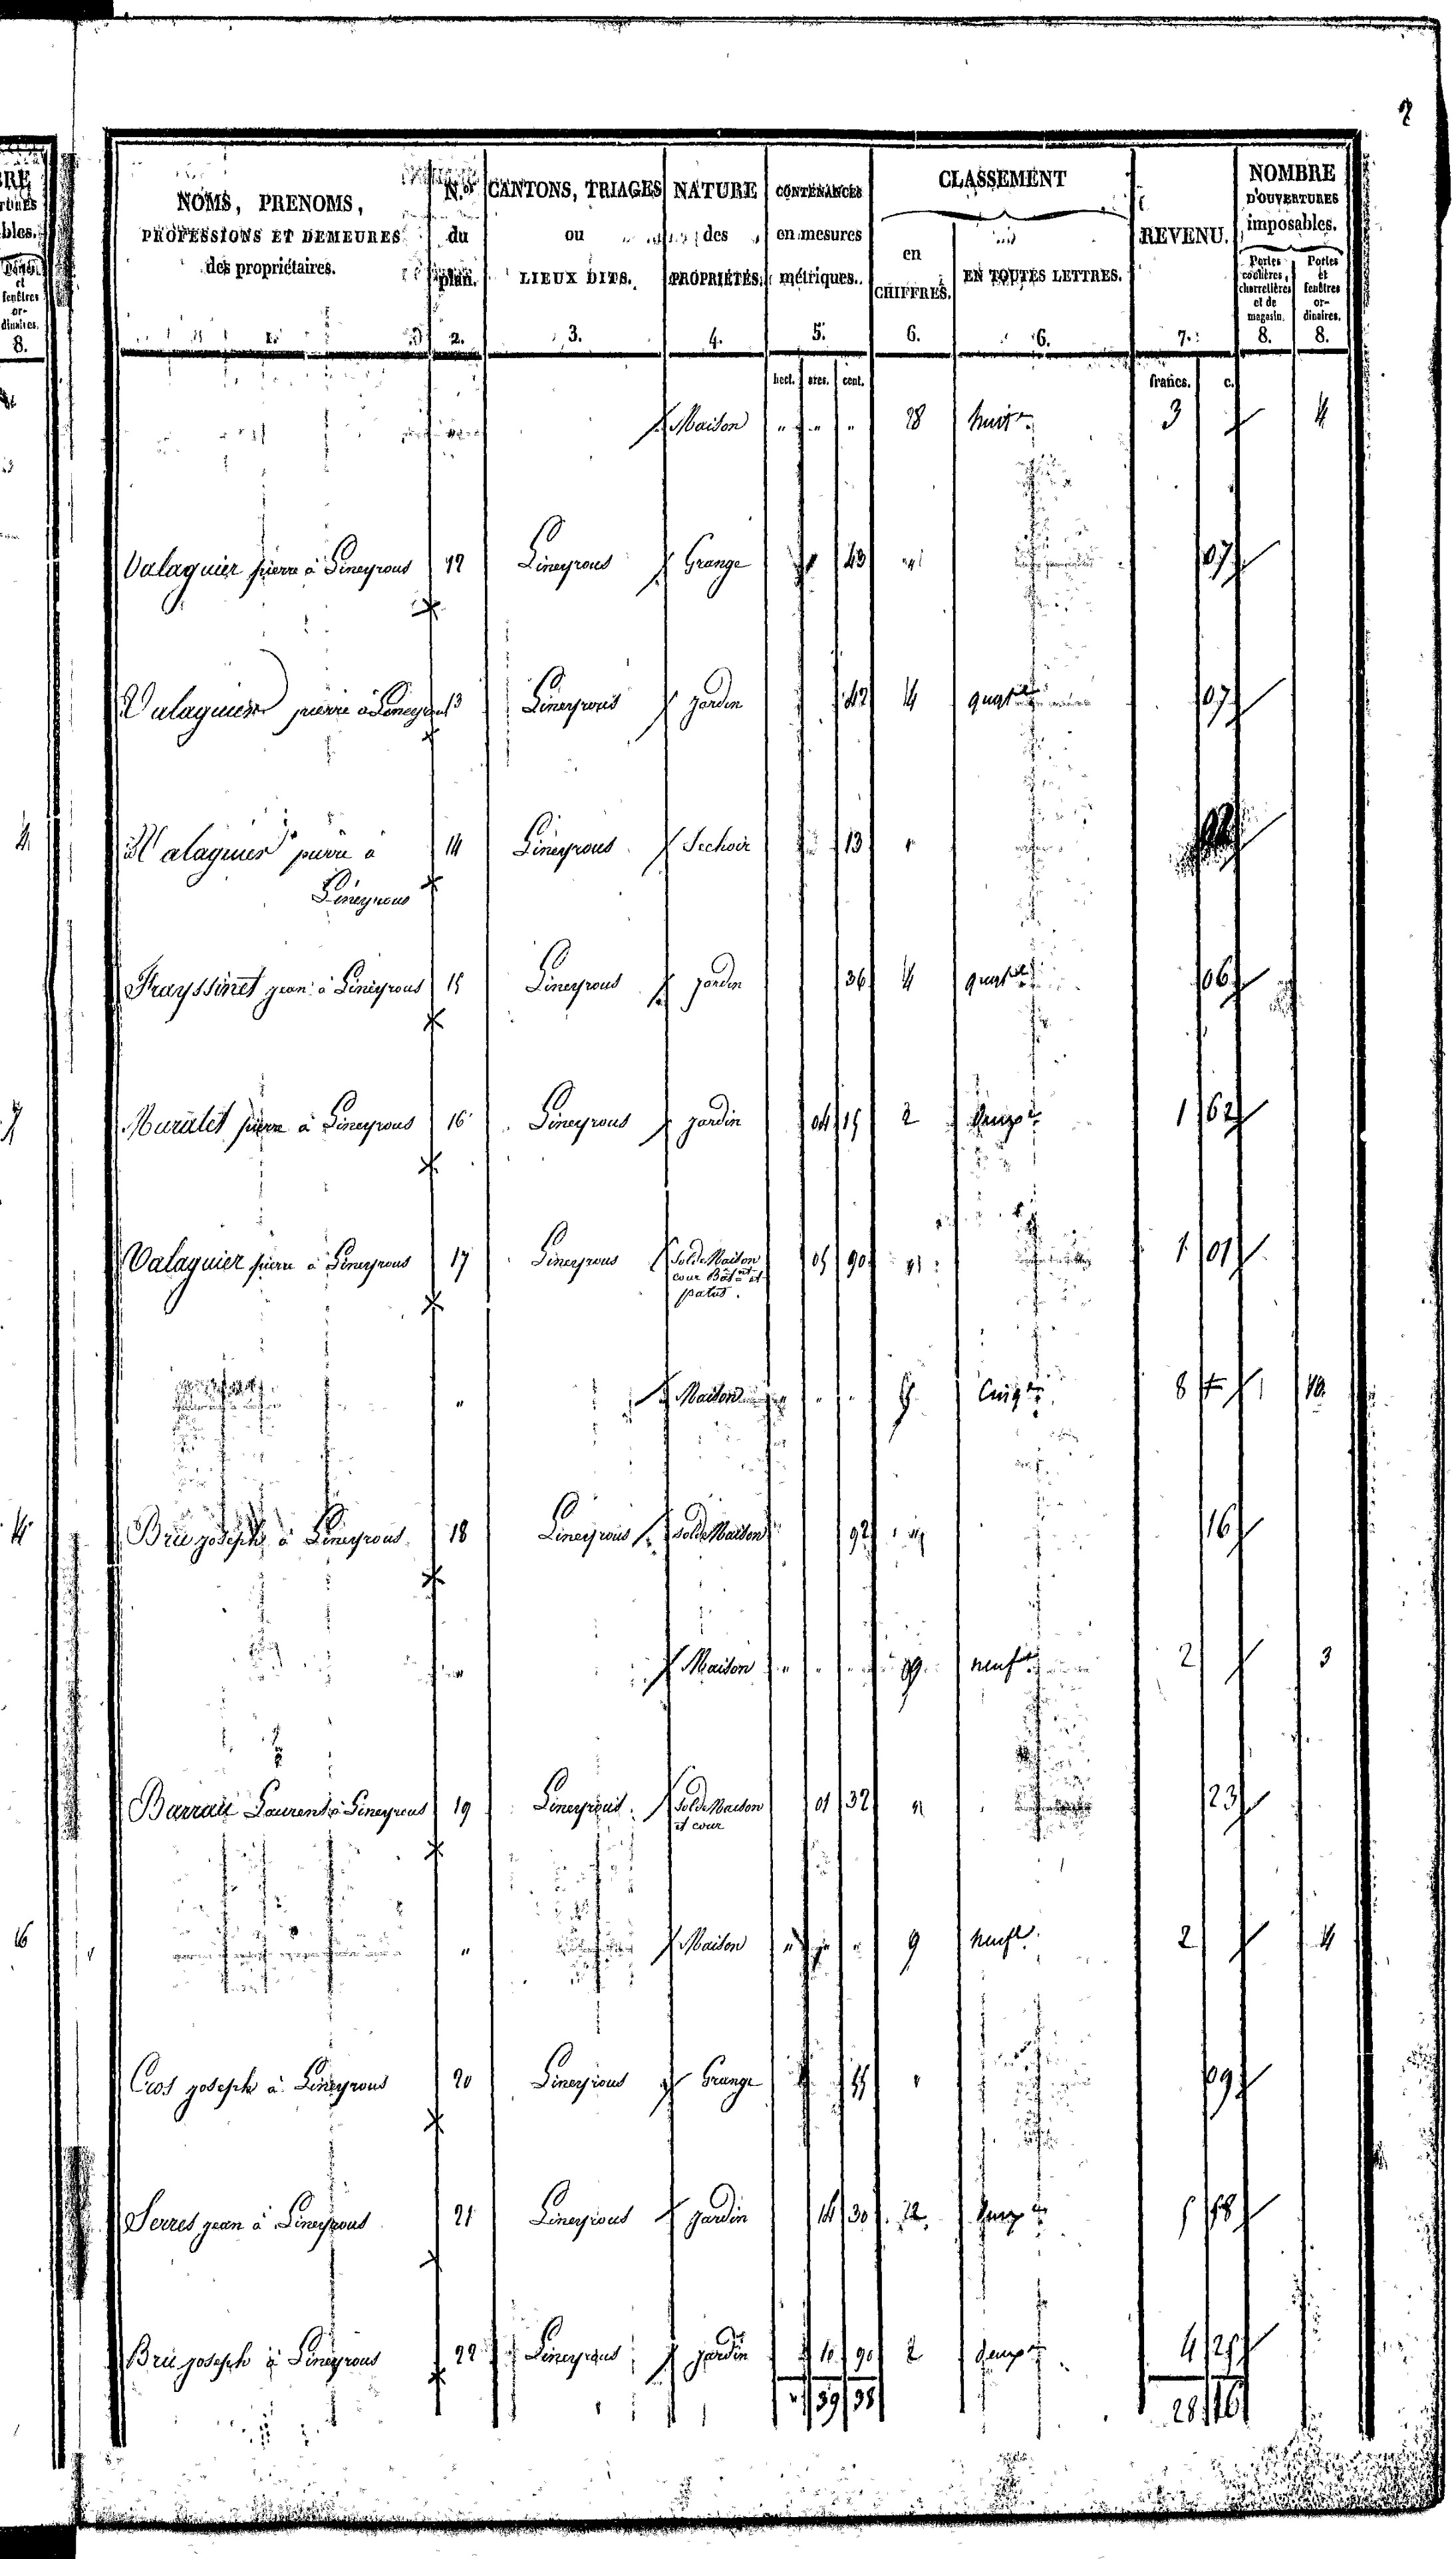 2
NOMS, PRENOMS, PROFESSIONS ET DEMEURES des propriétaires. 1.
N.os du plan. 2.
CANTONS, TRIAGES ou LIEUX DITS. 3.
NATURE des PROPRIÉTÉS. 4.
CONTENANCES en mesures métriques. 5.
CLASSEMENT
en CHIFFRES. 6.
EN TOUTES LETTRES. 6.
REVENU. 7.
NOMBRE D'OUVERTURES imposables.
Portes cochères, charretières et de magasin. 8.
Portes et fenêtres ordinaires. 8.
hect. ares. cent. francs. c.
Maison " " " 8 huit 3 4
Valaguier pierre à Lineyrous 12 Lineyrous Grange 43 " 07
Valaguier pierre à Lineyrous 13 Lineyrous jardin 42 4 07
Valaguier pierre à Lineyrous 14 Lineyrous Sechoir 13 "
Frayssinet jean à Lineyrous 15 Lineyrous jardin 36 4 06
Muratet pierre à Lineyrous 16 Lineyrous jardin 04 15 2 1 62
Valaguier pierre à Lineyrous 17 Lineyrous Sol de Maison cour Bât.nt et patus. 05 90 " 1 01
" Maison " " " 5 8 1 10
Brü joseph à Lineyrous 18 Lineyrous Sol de Maison 92 " 16
" Maison " " " 9 neuf 2 3
Barrau Laurent à Lineyrous 19 Lineyrous Sol de Maison et cour 01 32 " 23
" Maison " " " 9 neuf 2 4
Cros joseph à Lineyrous 20 Lineyrous Grange 55 " 09
Serres jean à Lineyrous 21 Lineyrous jardin 14 30 2 5 58
Brü joseph à Lineyrous 22 Lineyrous jardin 10 90 2 4 25
" 39 38 28 16